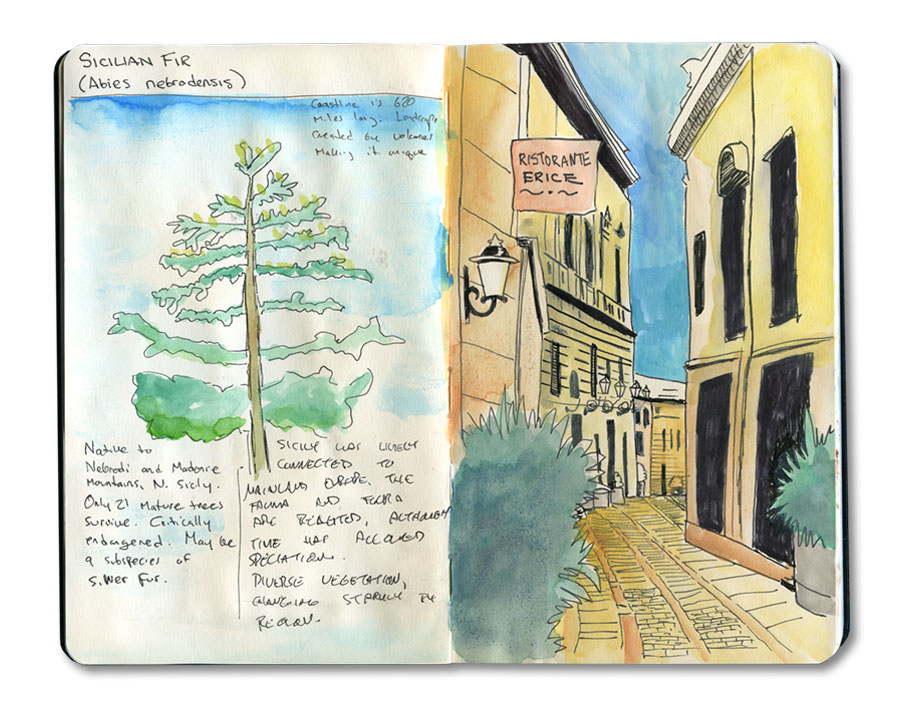 SICILIAN FIR
(Abies nebrodensis)
Coastline is 620
miles long. Landscape
created by volcanoes
making it unique
Native to
Nebrodi and Madonie
Mountains, N. Sicily.
Only 21 mature trees
survive. Critically
endangered. May be
a subspecies of
silver fur.
SICILY WAS LIKELY
CONNECTED TO
MAINLAND EUROPE. THE
FAUNA AND FLORA
ARE RELATED, ALTHOUGH
TIME HAS ALLOWED
SPECIATION.
DIVERSE VEGETATION,
CHANGING STARKLY BY
REGION.
RISTORANTE
ERICE